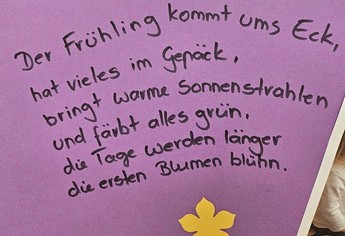 Der Frühling kommt ums Eck,
hat vieles im Gepäck,
bringt warme Sonnenstrahlen
und färbt alles grün,
die Tage werden länger
die ersten Blumen blühn.